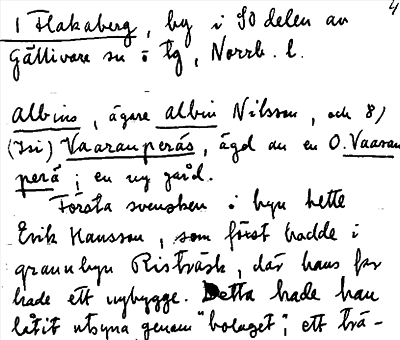 4
1 Flakaberg, by i SO delen av
Gällivare sn o tg, Norrb. l.
Albins, ägare Albin Nilsson, och 8)
(Isi) Vaaranperäs, ägd av en O. Vaaran
perä; en ny gård.
Första svensken i byn hette
Erik Hansson, som först hade i
grannbyn Risträsk, där hans far
hade ett nybygge. Detta hade han
låtit utsyna genom "bolaget"; ett trä-